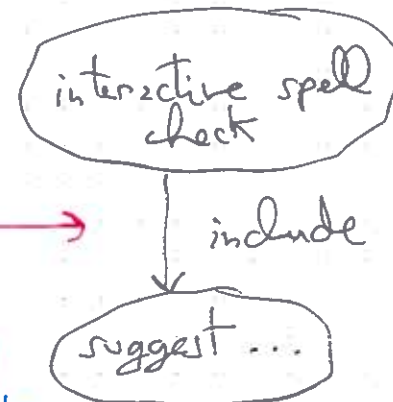 interactive spell
check
include
suggest ...